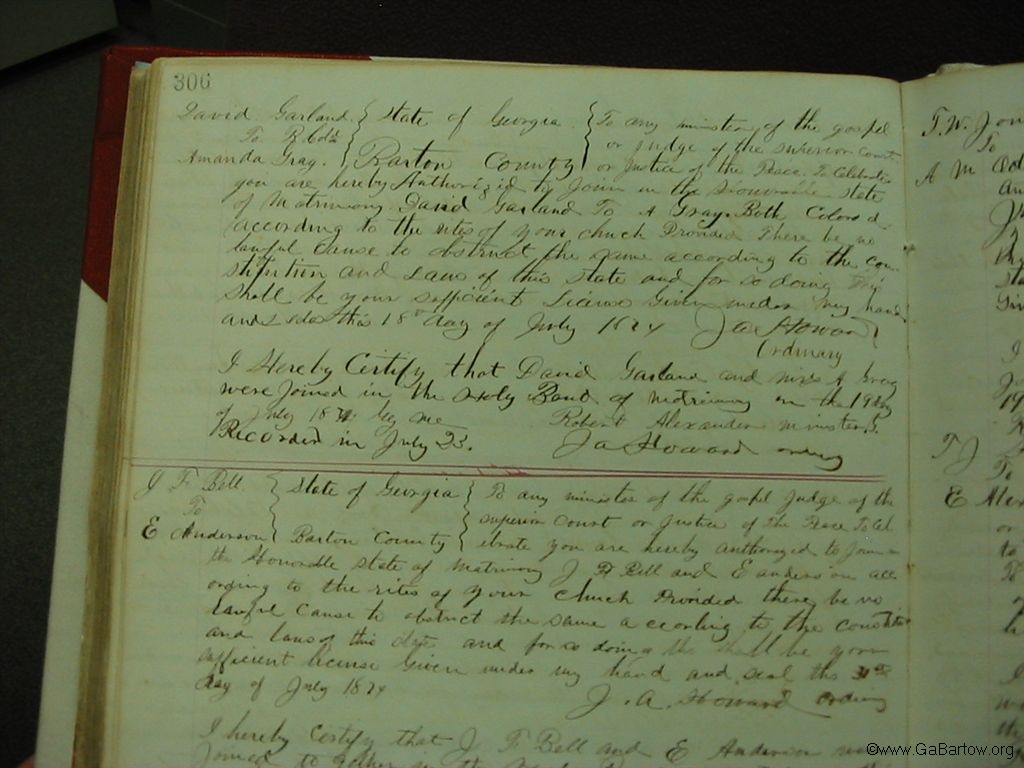 306
David Garland } State of Georgia } To any minister of the gospel
To
or Judge of the Superior Court
Amanda Gray. } Barton County } or Justice of the Peace. To Celebrate
you are hereby Authorized to Join in the Honorable State
of Matrimony David Garland To A Gray Both Colored
according to the rites of your chuch Provided There be no
lawful Cause to obstruct the same according to the Con
stitution and Laws of this State and for so doing This
shall be your sufficient License Given under my hand
and this 18th day of July 1874 Ja Howard
Ordinary
I Hereby Certify that David Garland and miss A Gray
were Joined in the Holy Bant of matrimony on the 19 day
of July 1874 By me Robert Alexander minister
Recorded in July 23. Ja Howard ordiny
J F Bell. } State of Georgia } To any minister of the gospel Judge of the
To
superior Court or Justice of the Peace To Cel
E Anderson } Barton County } ebrate you are hereby authorized to Join in
the Honorable State of matrimony J F Bell and E anderson acc
ording to the rites of your Chuch Provided there be no
lawful Cause to obstruct the same a ccording to the Constitution
and laws of this and for so doing shall be your
sufficient license Given under my hand and seal this
day of July 1874 J. A. Howard ordiny
I hereby Certify that J F Bell and E Anderson were
Joined to gether in the
T. W.
To
A M
T J
To
E
©www.GaBartow.org